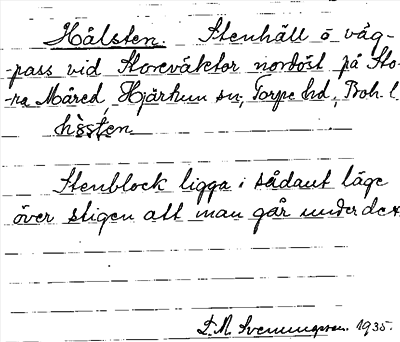 Hålsten. Stenhäll ö väg-
-pass vid Storeväktor nordöst på Sto-
-ra Måred, Hjärtum sn, Torpe hd, Boh. l.
Stenblock ligga i sådant läge
över stigen att man går under det
D.M. Svenungsson. 1935.